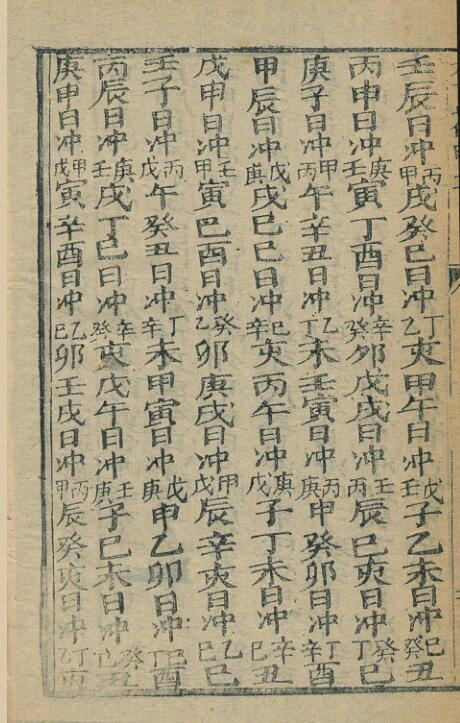 壬辰日冲丙甲戌癸巳日冲丁乙亥甲午日冲戊壬子乙未日冲巳癸丑
丙申日冲庚壬寅丁酉日冲辛癸卯戊戌日冲壬丙辰巳亥日冲癸丁巳
庚子日冲甲丙午辛丑日冲乙丁未壬寅日冲丙庚申癸卯日冲丁辛酉
甲辰日冲戊庚戌巳巳日冲巳辛亥丙午日冲庚戊子丁未日冲辛巳丑
戊申日冲壬甲寅巳酉日冲癸乙卯庚戌日冲甲戊辰辛亥日冲乙巳巳
壬子日冲丙戊午癸丑日冲丁辛未甲寅日冲戊庚申乙卯日冲巳丁酉
丙辰日冲庚壬戌丁巳日冲辛癸亥戊午日冲壬庚子巳未日冲癸丑
庚申日冲甲戊寅辛酉日冲乙巳卯壬戌日冲丙甲辰癸亥日冲丁乙